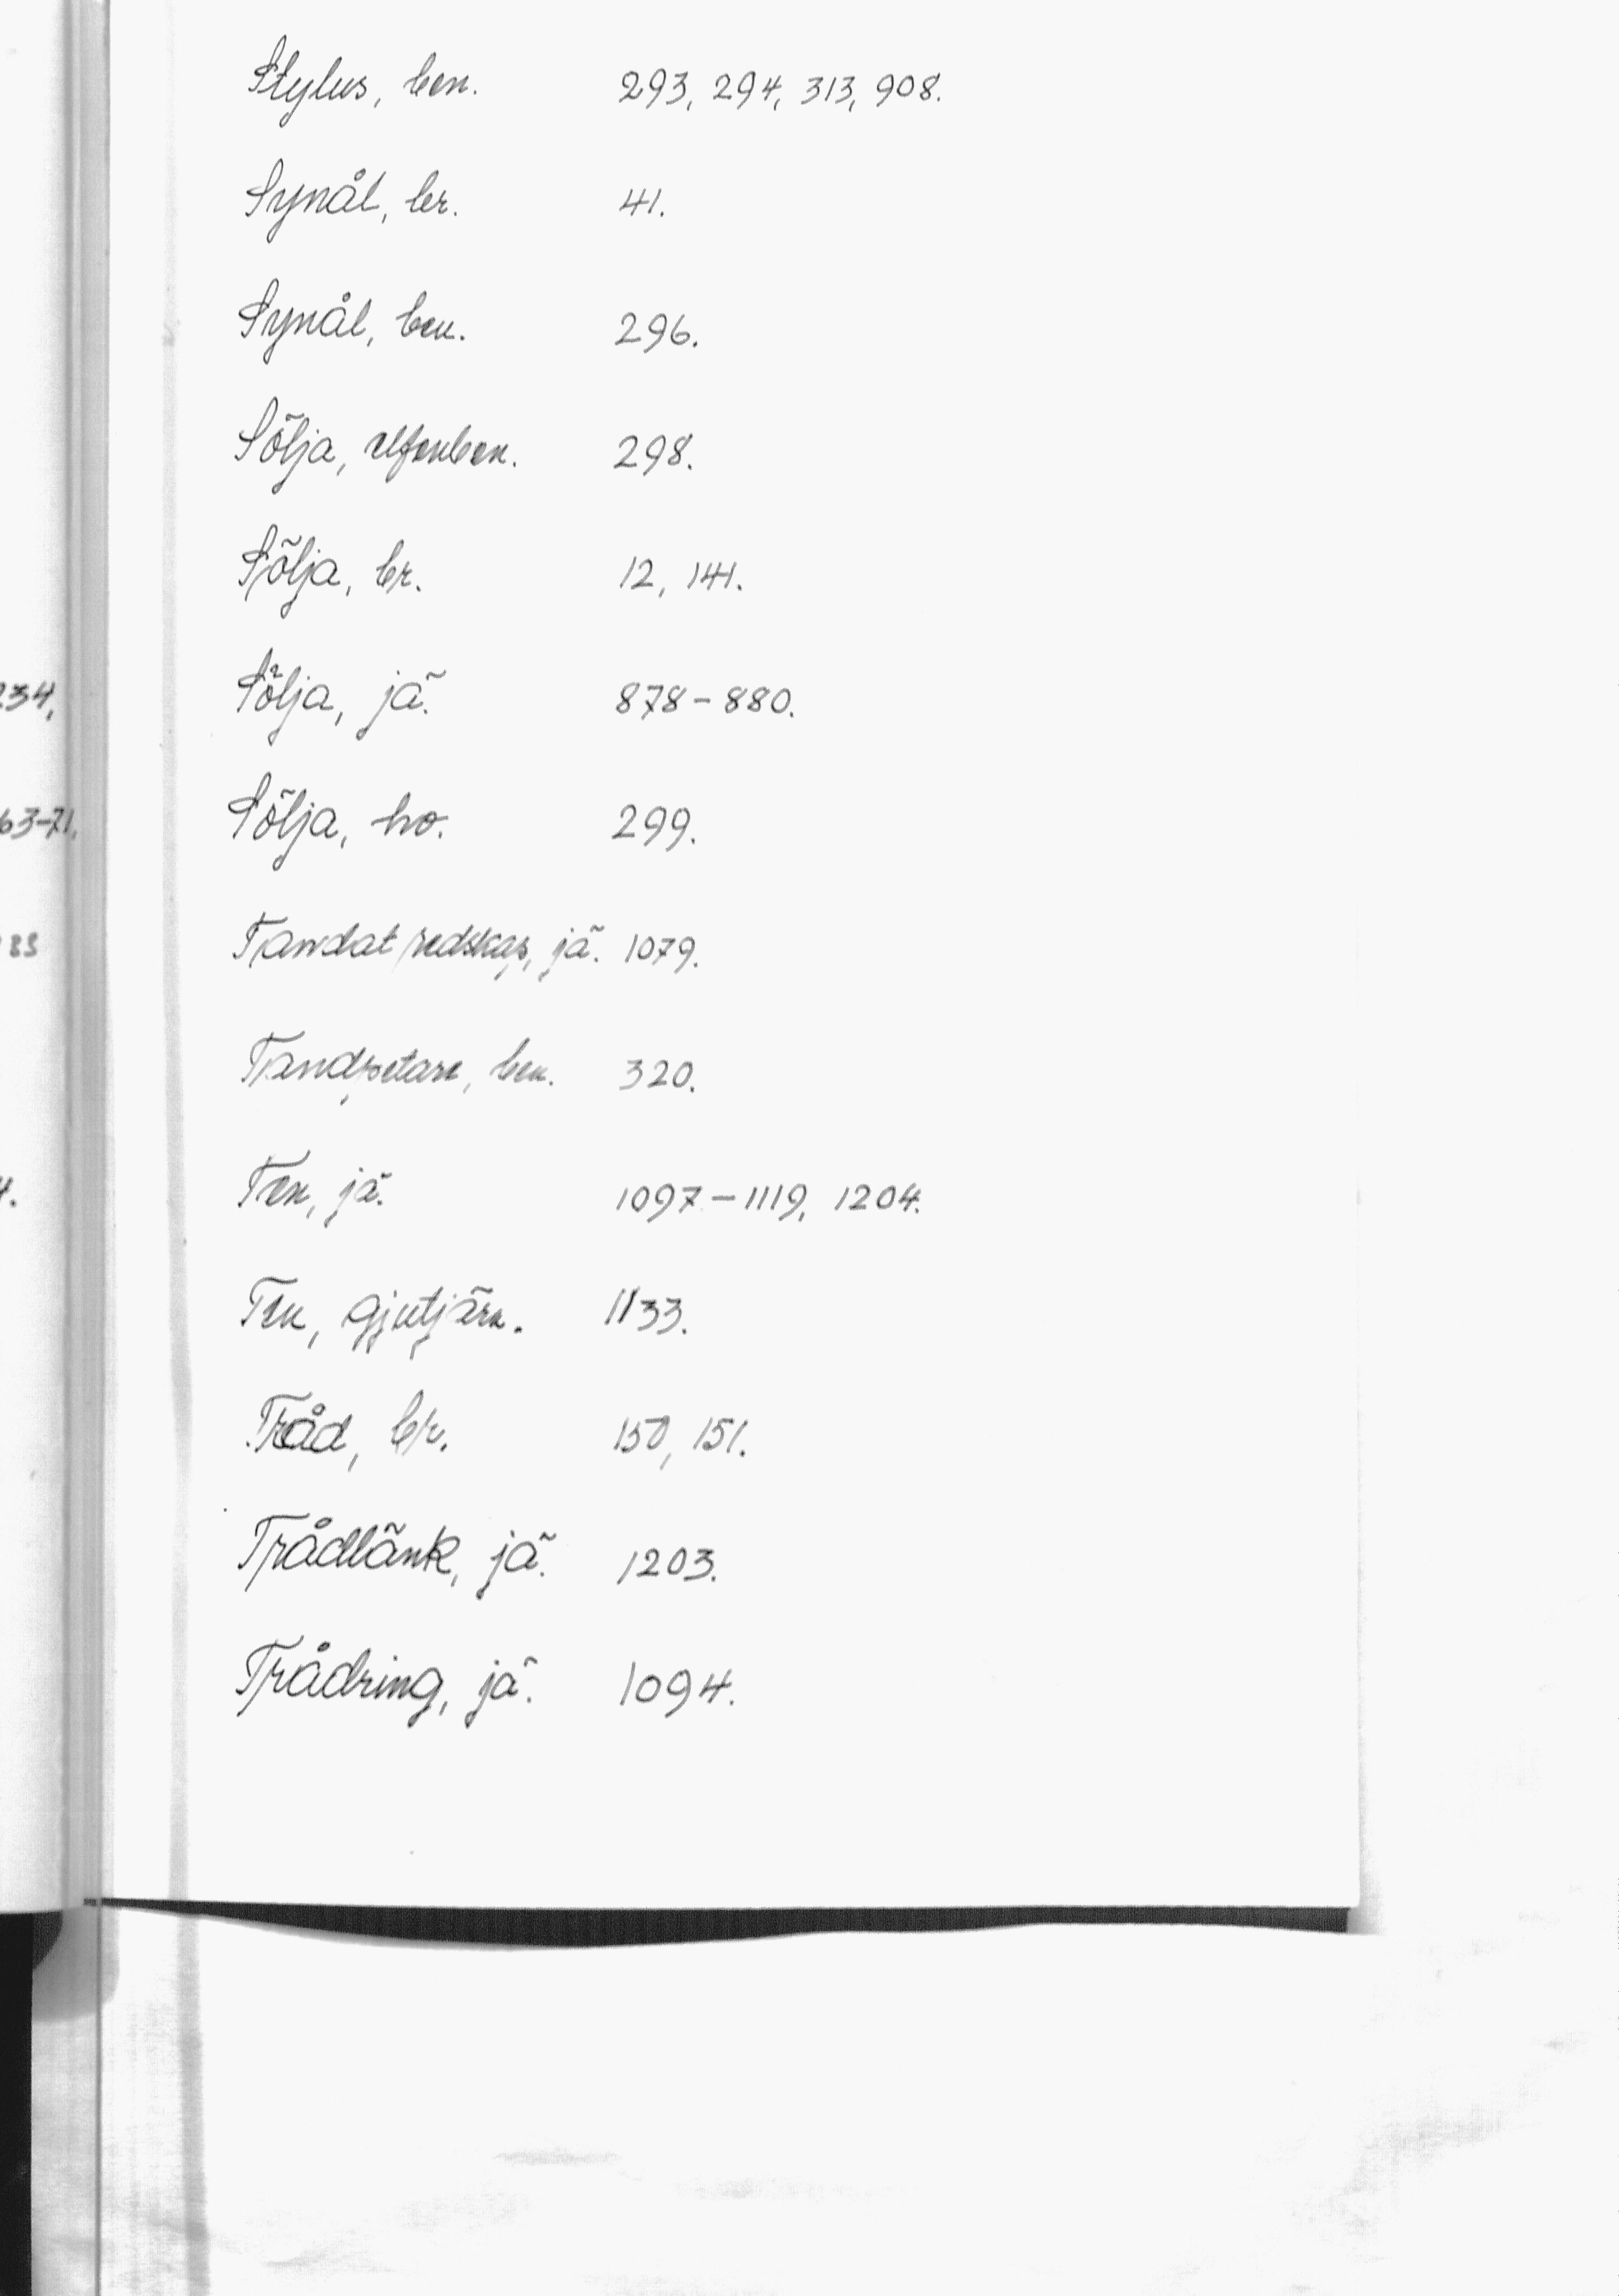 Stylus, ben. 293, 294, 313, 908.
Synål, br. 41.
Synål, ben. 296.
Sölja, elfenben. 298.
Sölja, br. 12, 141.
Sölja, jä. 878-880.
Sölja, ho. 299.
Tandat redskap, jä. 1079.
Tandpetare, ben. 320.
Ten, jä. 1097-1119, 1204.
Ten, gjutjärn. 1133.
Tråd, br. 150, 151.
Trådlänk, jä. 1203.
Trådring, jä. 1094.
234,
63-71,
4.